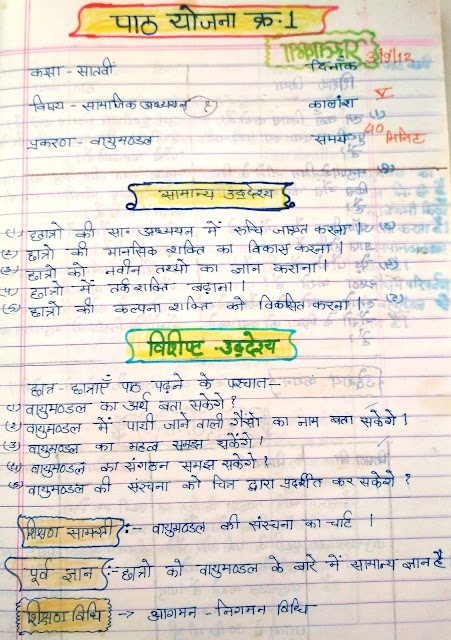 पाठ योजना क्र. 1
कक्षा - सातवीं दिनाँक 3/9/12
विषय - सामाजिक अध्ययन कालांश V
प्रकरण - वायुमण्डल समय 40 मिनिट
सामान्य उद्देश्य
(1) छात्रो की सा० अध्ययन में रुचि जाग्रत करना।
(2) छात्रो की मानसिक शक्ति का विकास करना।
(3) छात्रो को नवीन तथ्यो का ज्ञान कराना।
(4) छात्रो में तर्कशक्ति बढ़ाना।
(5) छात्रो की कल्पना शक्ति को विकसित करना।
विशिष्ट - उद्देश्य
छात्र - छात्राएँ पाठ पढ़ने के पश्चात -
(1) वायुमण्डल का अर्थ बता सकेगे?
(2) वायुमण्डल में पायी जाने वाली गैसो का नाम बता सकेगे।
(3) वायुमण्डल का महत्व समझ सकेंगे।
(4) वायुमण्डल का संगठन समझ सकेगे?
(5) वायुमण्डल की संरचना को चित्र द्वारा प्रदर्शीत कर सकेगे?
शिक्षण सामग्री :- वायुमण्डल की संरचना का चार्ट।
पूर्व ज्ञान :- छात्रो को वायुमण्डल के बारे में सामान्य ज्ञान है
शिक्षण विधि -> आगमन - निगमन विधि